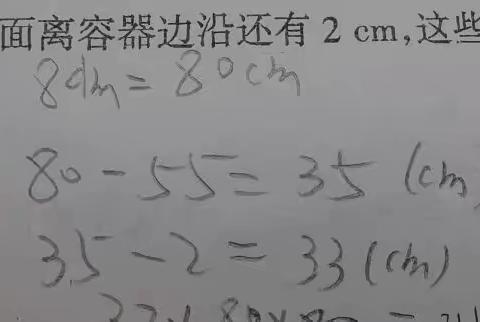 面离容器边沿还有 2 cm,这些
8dm = 80cm
80 - 55 = 35 (cm
35 - 2 = 33 (cm)